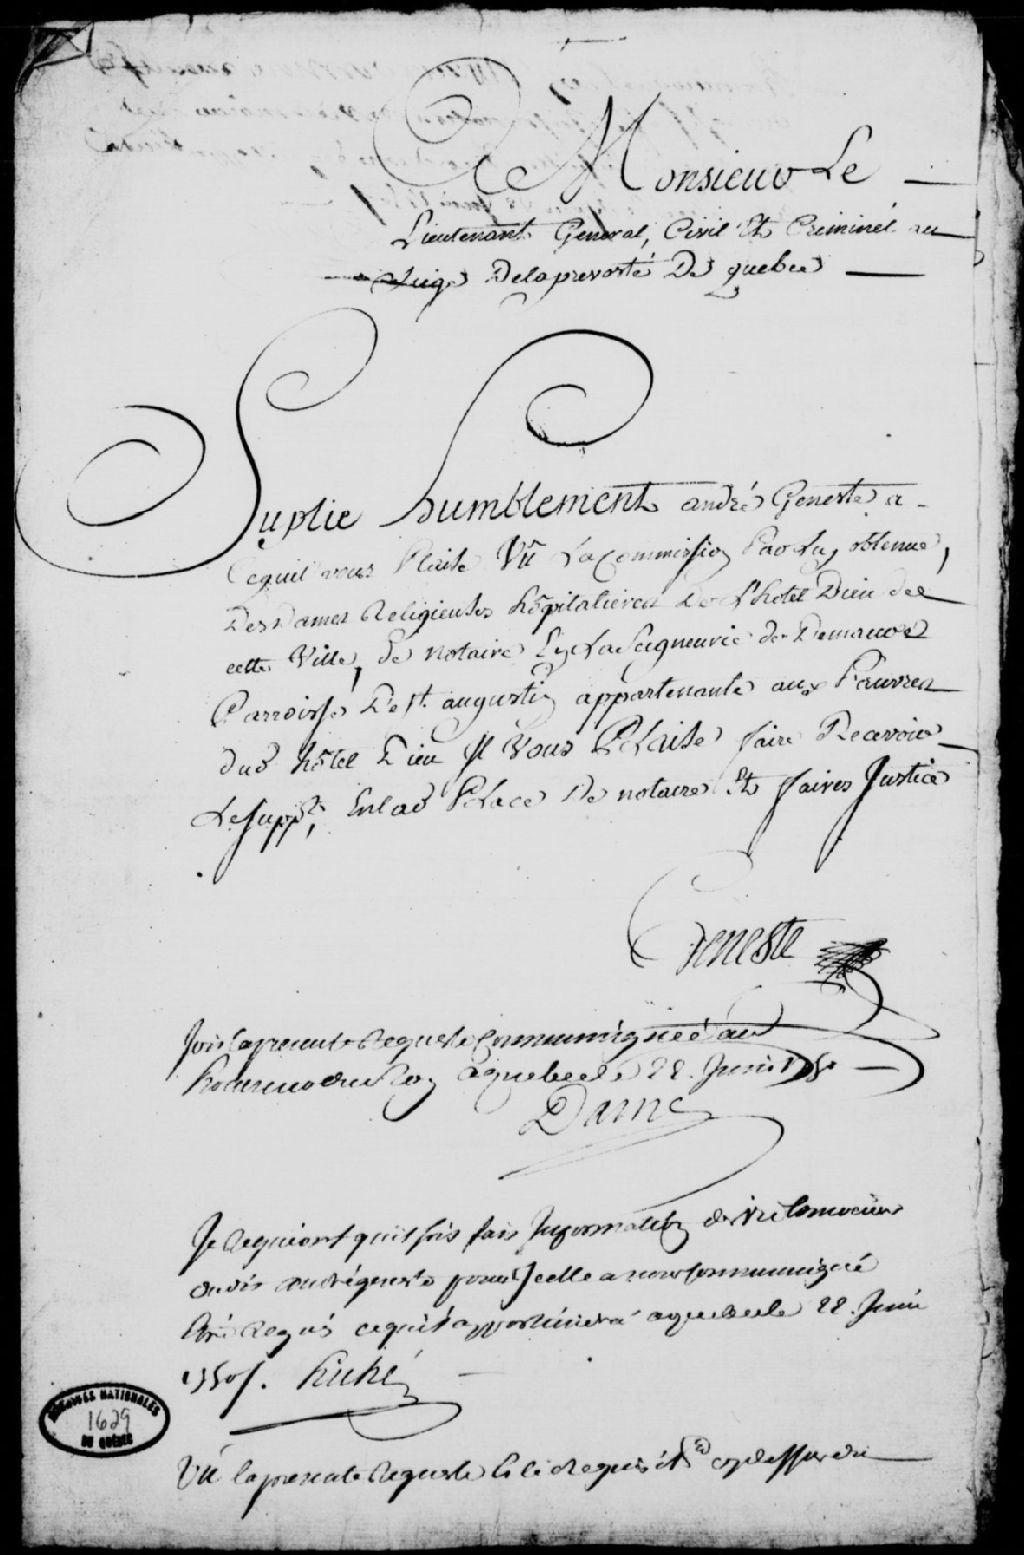 A Monsieur Le
Lieutenant General, Civil Et Criminel au
Siege Delaprevosté De quebec
Suplie humblement andré Geneste a
Cequil vous Plaise Vû La Commission Par Luy obtenue,
Des Dames Religieuses hôpitalieres De L'hotel Dieu de
cette Ville, de notaire En La Seigneurie de Demaure
Parroisse De st. augustin appartenante aux Pauvres
dud hôtel Dieu Il Vous Plaise faire Recevoir
Le supplt, En lad Place De notaire Et faires Justice
Geneste
Soit la presente Requeste Communiquée au
Procureur du Roy a quebec le 22. Juin 1750
Daine
Je Requiert quil soit fait Information de vie & moeurs
dudit andré geneste pour Icelle a nous Communiquée
Etre Requis ce quil appartiendra a quebec le 22. Juin
1750. hiché
ARCHIVES NATIONALES
1629
DU QUÉBEC
Vû la presente Requeste le Requis cy dessus du